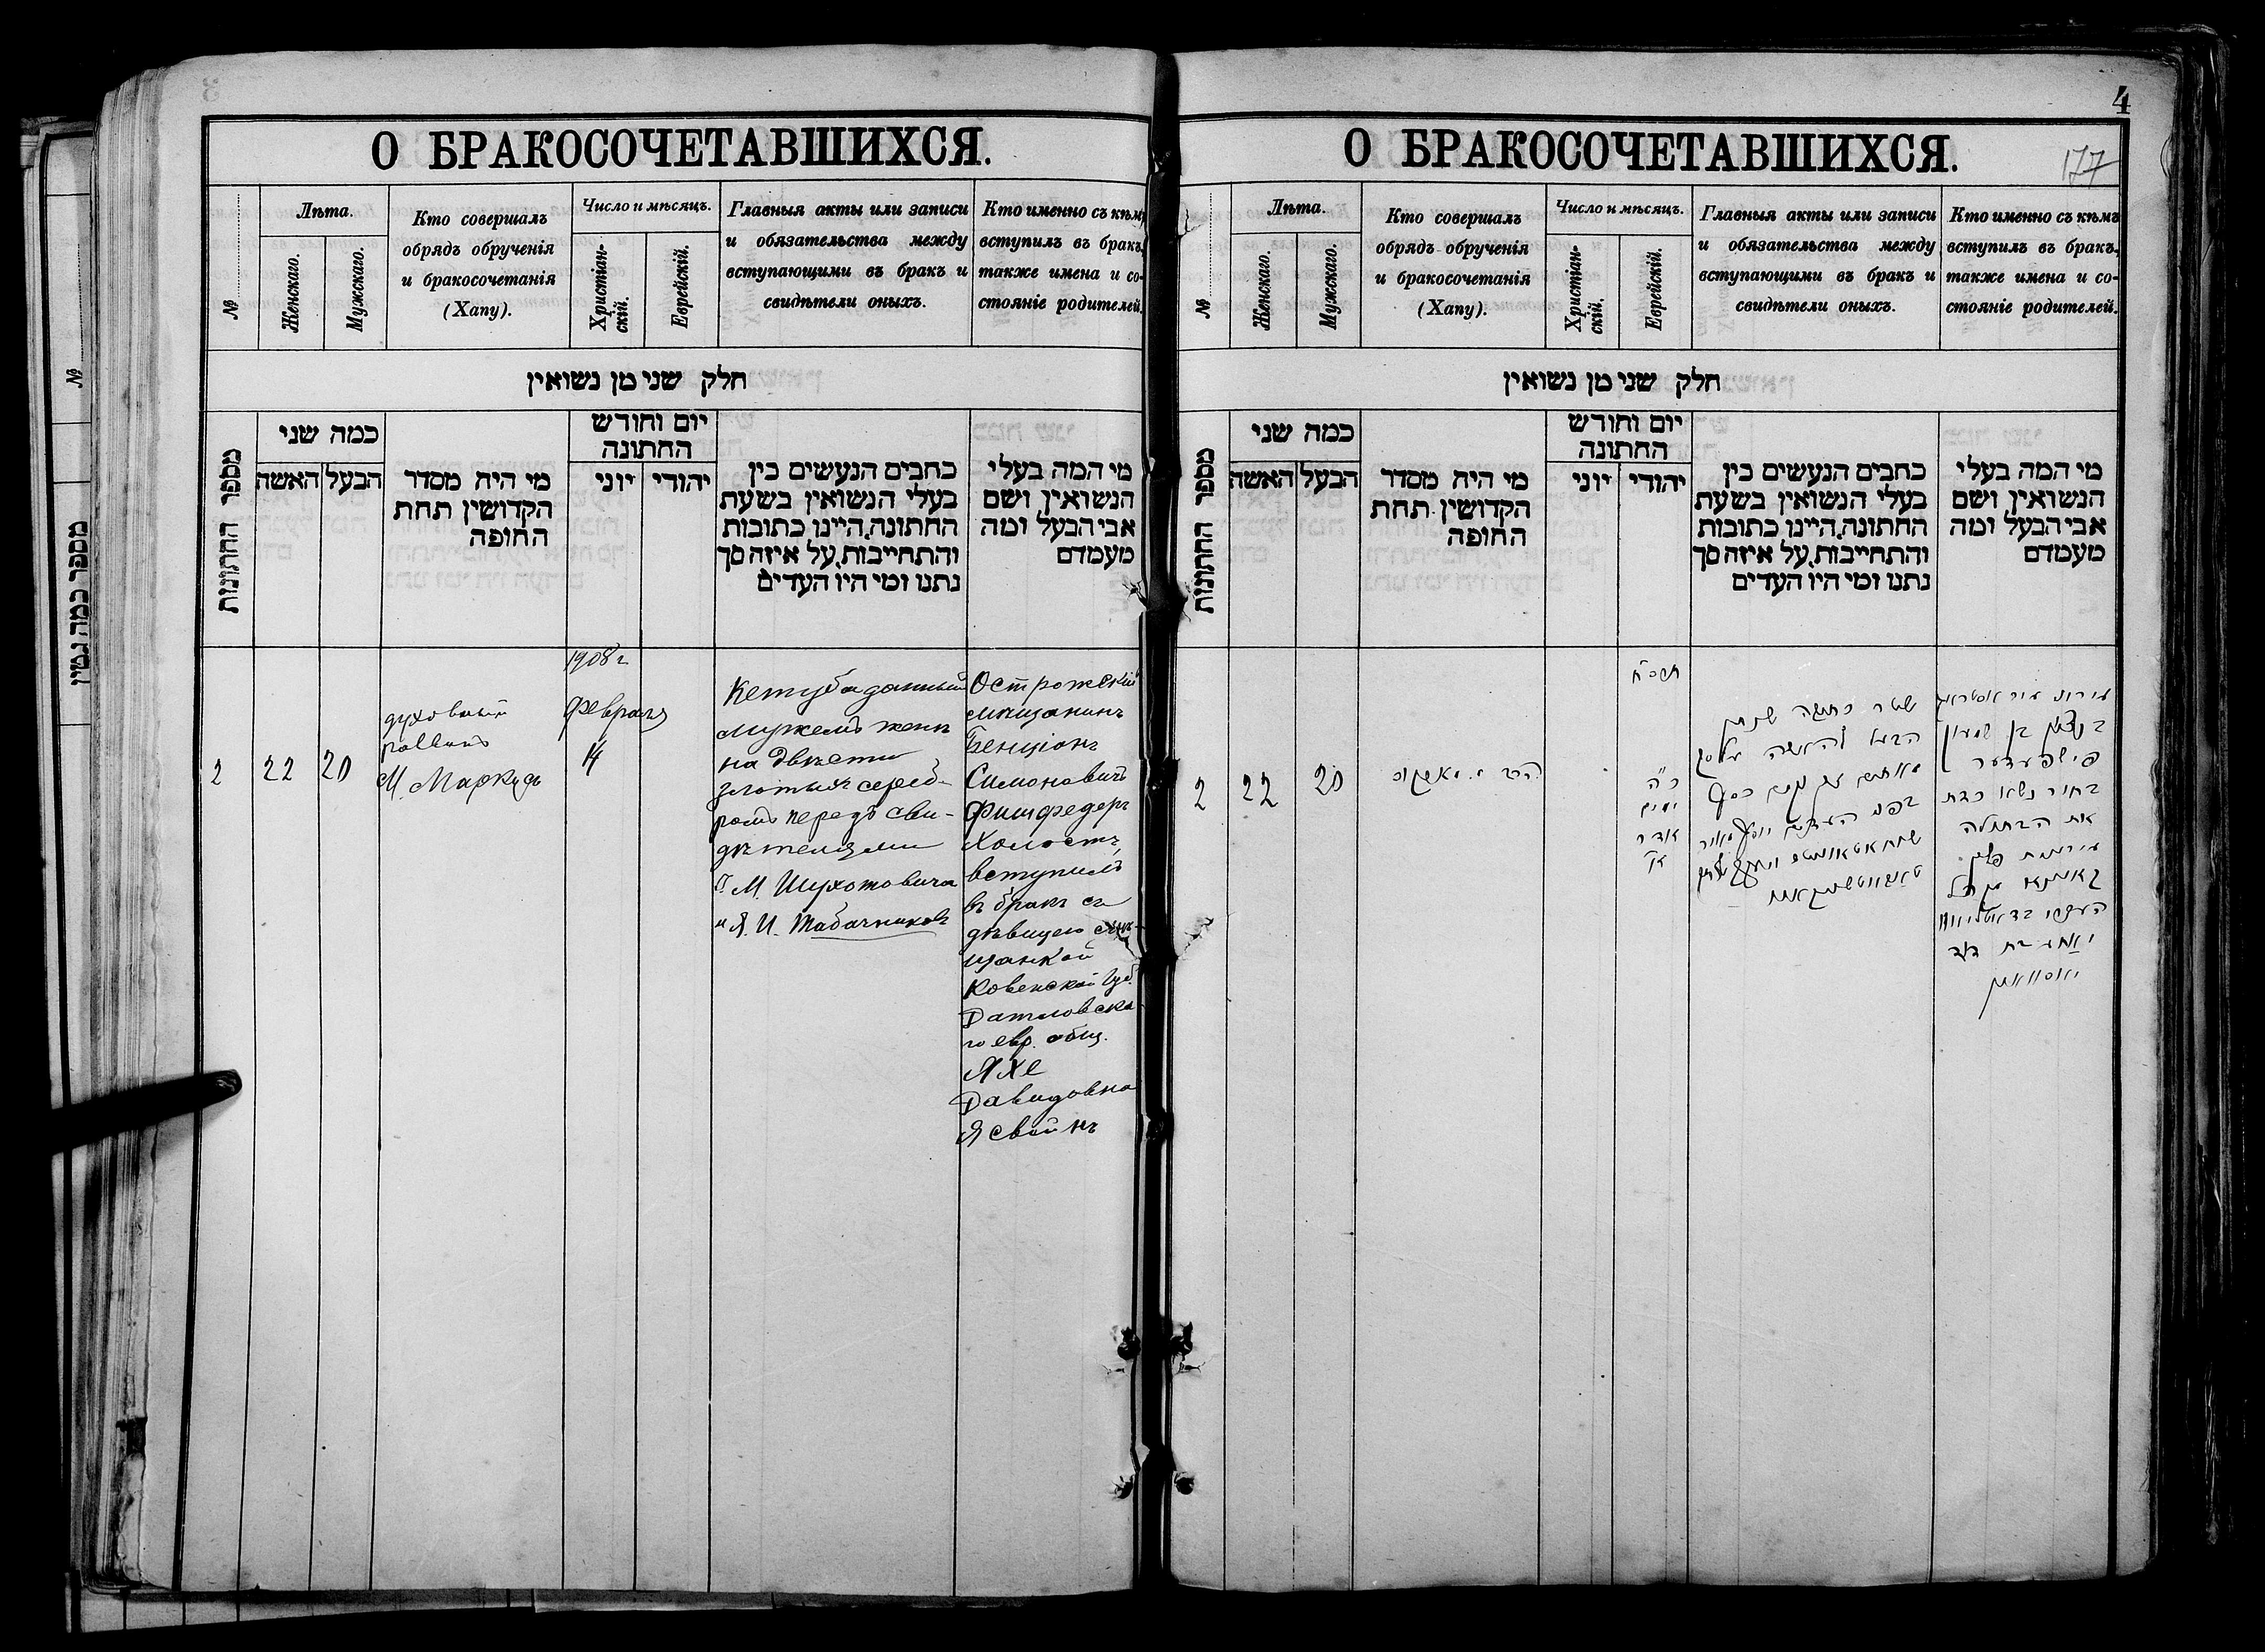 4
177
О БРАКОСОЧЕТАВШИХСЯ.
№
Лѣта.
Женскаго.
Мужскаго.
Кто совершалъ
обрядъ обрученія
и бракосочетанія
(Хапу).
Число и мѣсяцъ.
Христіан-
скій.
Еврейскій.
Главныя акты или записи
и обязательства между
вступающими въ бракъ и
свидѣтели оныхъ.
Кто именно съ кѣмъ
вступилъ въ бракъ,
также имена и со-
стояніе родителей.
חלק שני מן נשואין
מספר החתונות
כמה שני
האשה
הבעל
מי היה מסדר
הקדושין תחת
החופה
יום וחודש
החתונה
יוני
יהודי
כתבים הנעשים בין
בעלי הנשואין בשעת
החתונה, היינו כתובות
והתחייבות, על איזה סך
נתנו ומי היו העדים
מי המה בעלי
הנשואין, ושם
אבי הבעל ומה
מעמדם
2
22
20
духовный
раввинъ
М. Маркусъ
1908 г
февраля
14
Кетуба данный
мужемъ женѣ
на двѣсти
злотыхъ сереб-
ромъ передъ сви-
дѣтелями
М. Шухотовича
и Я. И. Табачниковъ
Острожскій
мѣщанинъ
Бенціонъ
Симоновичъ
Фишфедеръ
Холостъ,
вступилъ
въ бракъ съ
дѣвицею мѣ-
щанкой
Ковенской Губ.
Датновска
го евр. общ.
Яхе
Давидовна
Ясвойнъ
О БРАКОСОЧЕТАВШИХСЯ.
№
Лѣта.
Женскаго.
Мужскаго.
Кто совершалъ
обрядъ обрученія
и бракосочетанія
(Хапу).
Число и мѣсяцъ.
Христіан-
скій.
Еврейскій.
Главныя акты или записи
и обязательства между
вступающими въ бракъ и
свидѣтели оныхъ.
Кто именно съ кѣмъ
вступилъ въ бракъ,
также имена и со-
стояніе родителей.
חלק שני מן נשואין
מספר החתונות
כמה שני
האשה
הבעל
מי היה מסדר
הקדושין תחת
החופה
יום וחודש
החתונה
יוני
יהודי
כתבים הנעשים בין
בעלי הנשואין בשעת
החתונה, היינו כתובות
והתחייבות, על איזה סך
נתנו ומי היו העדים
מי המה בעלי
הנשואין, ושם
אבי הבעל ומה
מעמדם
2
22
20
הרב מ. מארקוס
תרס"ח
כ"ה
ימים
אדר
א'
שטר כתובה שנתן
הבעל להאשה על סך
מאתים זהובים כסף
בפני העדים
עירוני עיר אסטראג
בן ציון בן שמעון
פישפעדער
בחור נשא כדת
את הבתולה
עירונית
קאוונא
יאכע בת דוד
יאסוואין
№
מספר כמה גטין